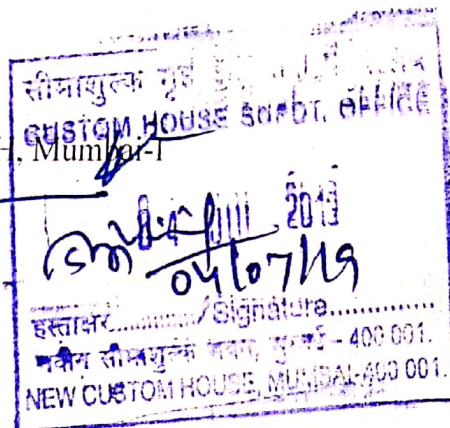 सीमाशुल्क गृह
CUSTOM HOUSE SUPDT. OFFICE
H, Mumbai-I
04 JUL 2019
04/07/19
हस्ताक्षर............/Signature..............
नवीन सीमाशुल्क भवन, मुम्बई - 400 001.
NEW CUSTOM HOUSE, MUMBAI-400 001.